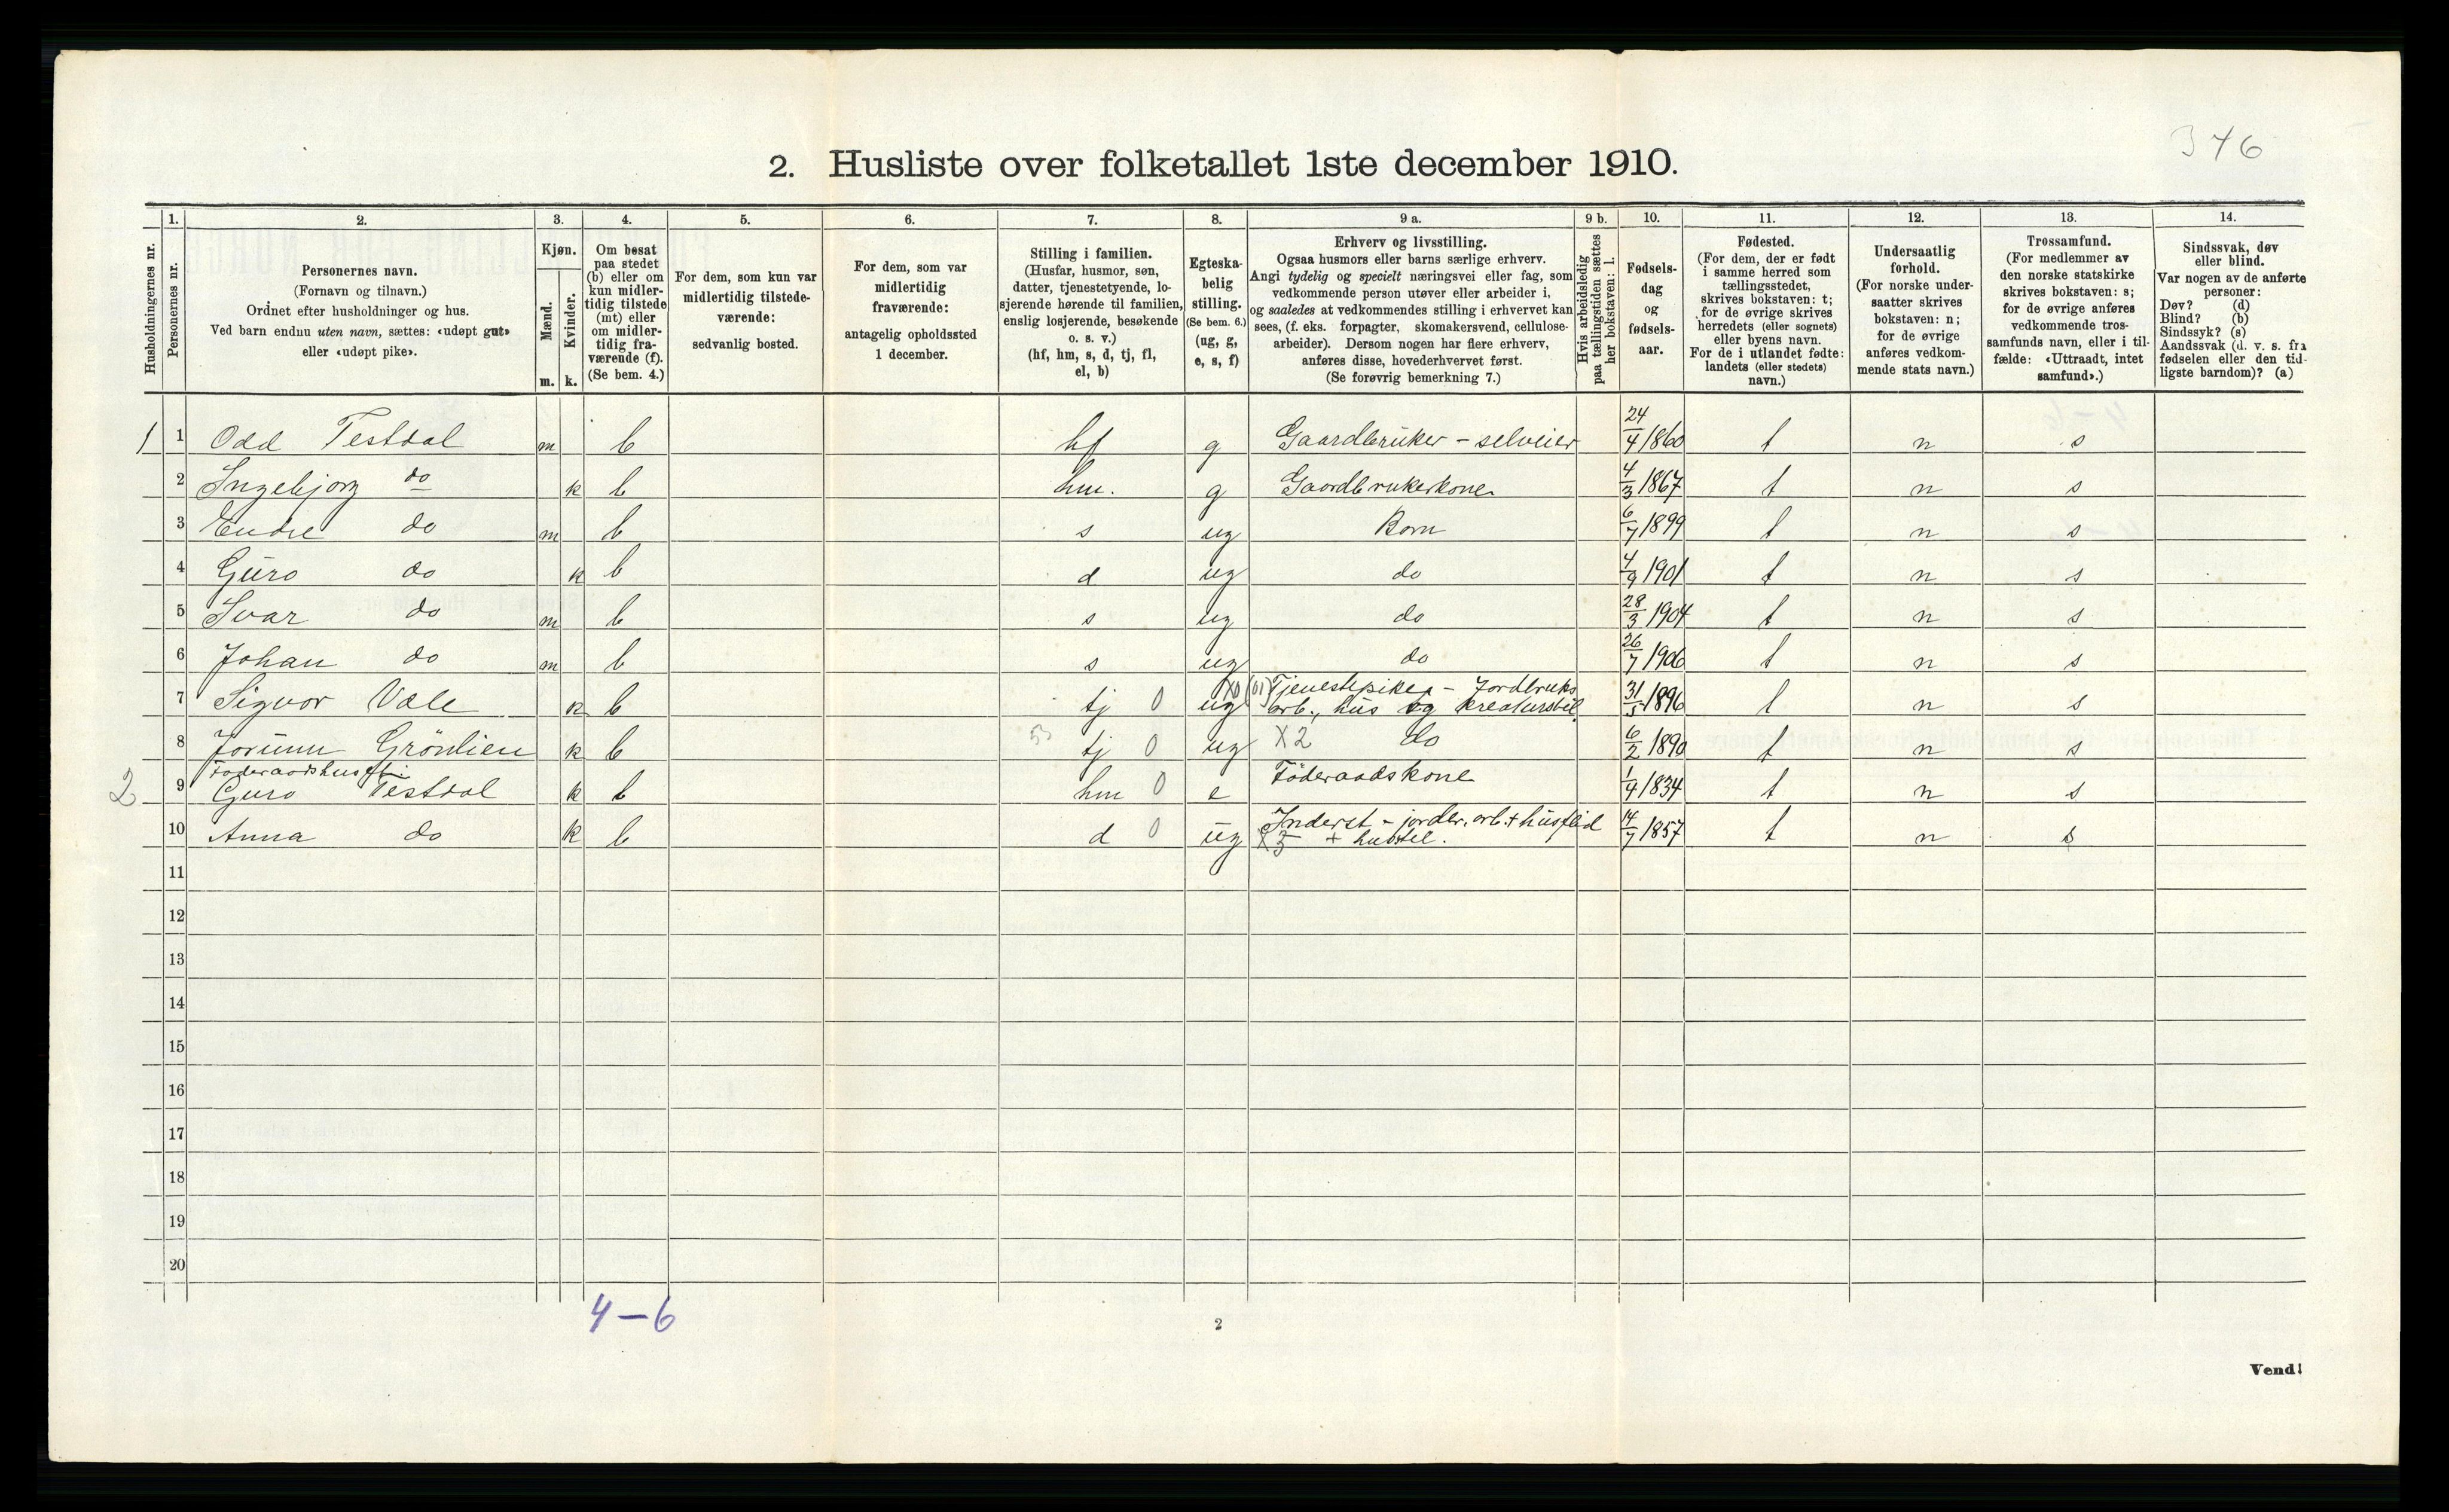 376
2. Husliste over folketallet 1ste december 1910.
Husholdningernes nr.
1.
Personernes nr.
2.
Personernes navn.
(Fornavn og tilnavn.)
Ordnet efter husholdninger og hus.
Ved barn endnu uten navn, sættes: «udøpt gut»
eller «udøpt pike».
3.
Kjøn.
Mænd.
Kvinder.
m. k.
4.
Om bosat
paa stedet
(b) eller om
kun midler-
tidig tilstede
(mt) eller
om midler-
tidig fra-
værende (f).
(Se bem. 4.)
5.
For dem, som kun var
midlertidig tilstede-
værende:
sedvanlig bosted.
6.
For dem, som var
midlertidig
fraværende:
antagelig opholdssted
1 december.
7.
Stilling i familien.
(Husfar, husmor, søn,
datter, tjenestetyende, lo-
sjerende hørende til familien,
enslig losjerende, besøkende
o. s. v.)
(hf, hm, s, d, tj, fl,
el, b)
8.
Egteska-
belig
stilling.
(Se bem. 6.)
(ug, g,
e, s, f)
9 a.
Erhverv og livsstilling.
Ogsaa husmors eller barns særlige erhverv.
Angi tydelig og specielt næringsvei eller fag, som
vedkommende person utøver eller arbeider i,
og saaledes at vedkommendes stilling i erhvervet kan
sees, (f. eks. forpagter, skomakersvend, cellulose-
arbeider). Dersom nogen har flere erhverv,
anføres disse, hovederhvervet først.
(Se forøvrig bemerkning 7.)
9 b.
Hvis arbeidsledig
paa tællingstiden sættes
her bokstaven: l.
10.
Fødsels-
dag
og
fødsels-
aar.
11.
Fødested.
(For dem, der er født
i samme herred som
tællingsstedet,
skrives bokstaven: t;
for de øvrige skrives
herredets (eller sognets)
eller byens navn.
For de i utlandet fødte:
landets (eller stedets)
navn.)
12.
Undersaatlig
forhold.
(For norske under-
saatter skrives
bokstaven: n;
for de øvrige
anføres vedkom-
mende stats navn.)
13.
Trossamfund.
(For medlemmer av
den norske statskirke
skrives bokstaven: s;
for de øvrige anføres
vedkommende tros-
samfunds navn, eller i til-
fælde: «Uttraadt, intet
samfund».)
14.
Sindssvak, døv
eller blind.
Var nogen av de anførte
personer:
Døv? (d)
Blind? (b)
Sindssyk? (s)
Aandssvak (d. v. s. fra
fødselen eller den tid-
ligste barndom)? (a)
1 1 Odd Testdal m b hf g Gaardbruker - selveier 24/4 1860 t n s
2 Ingebjorg do k b hm. g Gaardbrukerkone 4/3 1867 t n s
3 Endre do m b s ug Born 6/7 1899 t n s
4 Guro do k b d ug do 4/9 1901 t n s
5 Ivar do m b s ug do 28/3 1904 t n s
6 Johan do m b s ug do 26/7 1906 t n s
7 Sigvor Vale k b tj 0 ug Tjenestepike - Jordbruks
arb., hus og kreaturstel 31/5 1896 t n s
8 Jorunn Grönlien k b tj 0 ug X2 do 6/2 1890 t n s
2 9 Guro Testdal k b hm 0 e Föderaadskone 1/4 1834 t n s
10 Anna do k b d 0 ug Inderst - jordbr. arb. + husflid
X3 + husstel. 14/7 1857 t n s
11
12
13
14
15
16
17
18
19
20
4-6
2
Vend!